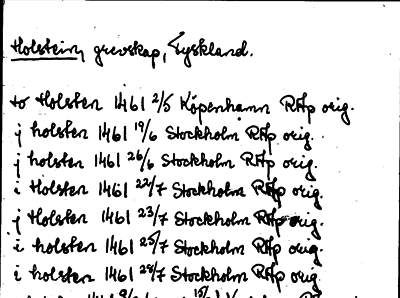 Holstein, grevskap, Tyskland.
to Holsten 1461 2/5 Köpenhamn RAp orig.
j holsten 1461 19/6 Stockholm RAp orig.
j holsten 1461 26/6 Stockholm RAp orig.
i Holsten 1461 22/7 Stockholm RAp orig.
j Holsten 1461 23/7 Stockholm RAp orig.
i holsten 1461 25/7 Stockholm RAp orig.
i holsten 1461 28/7 Stockholm RAp orig.